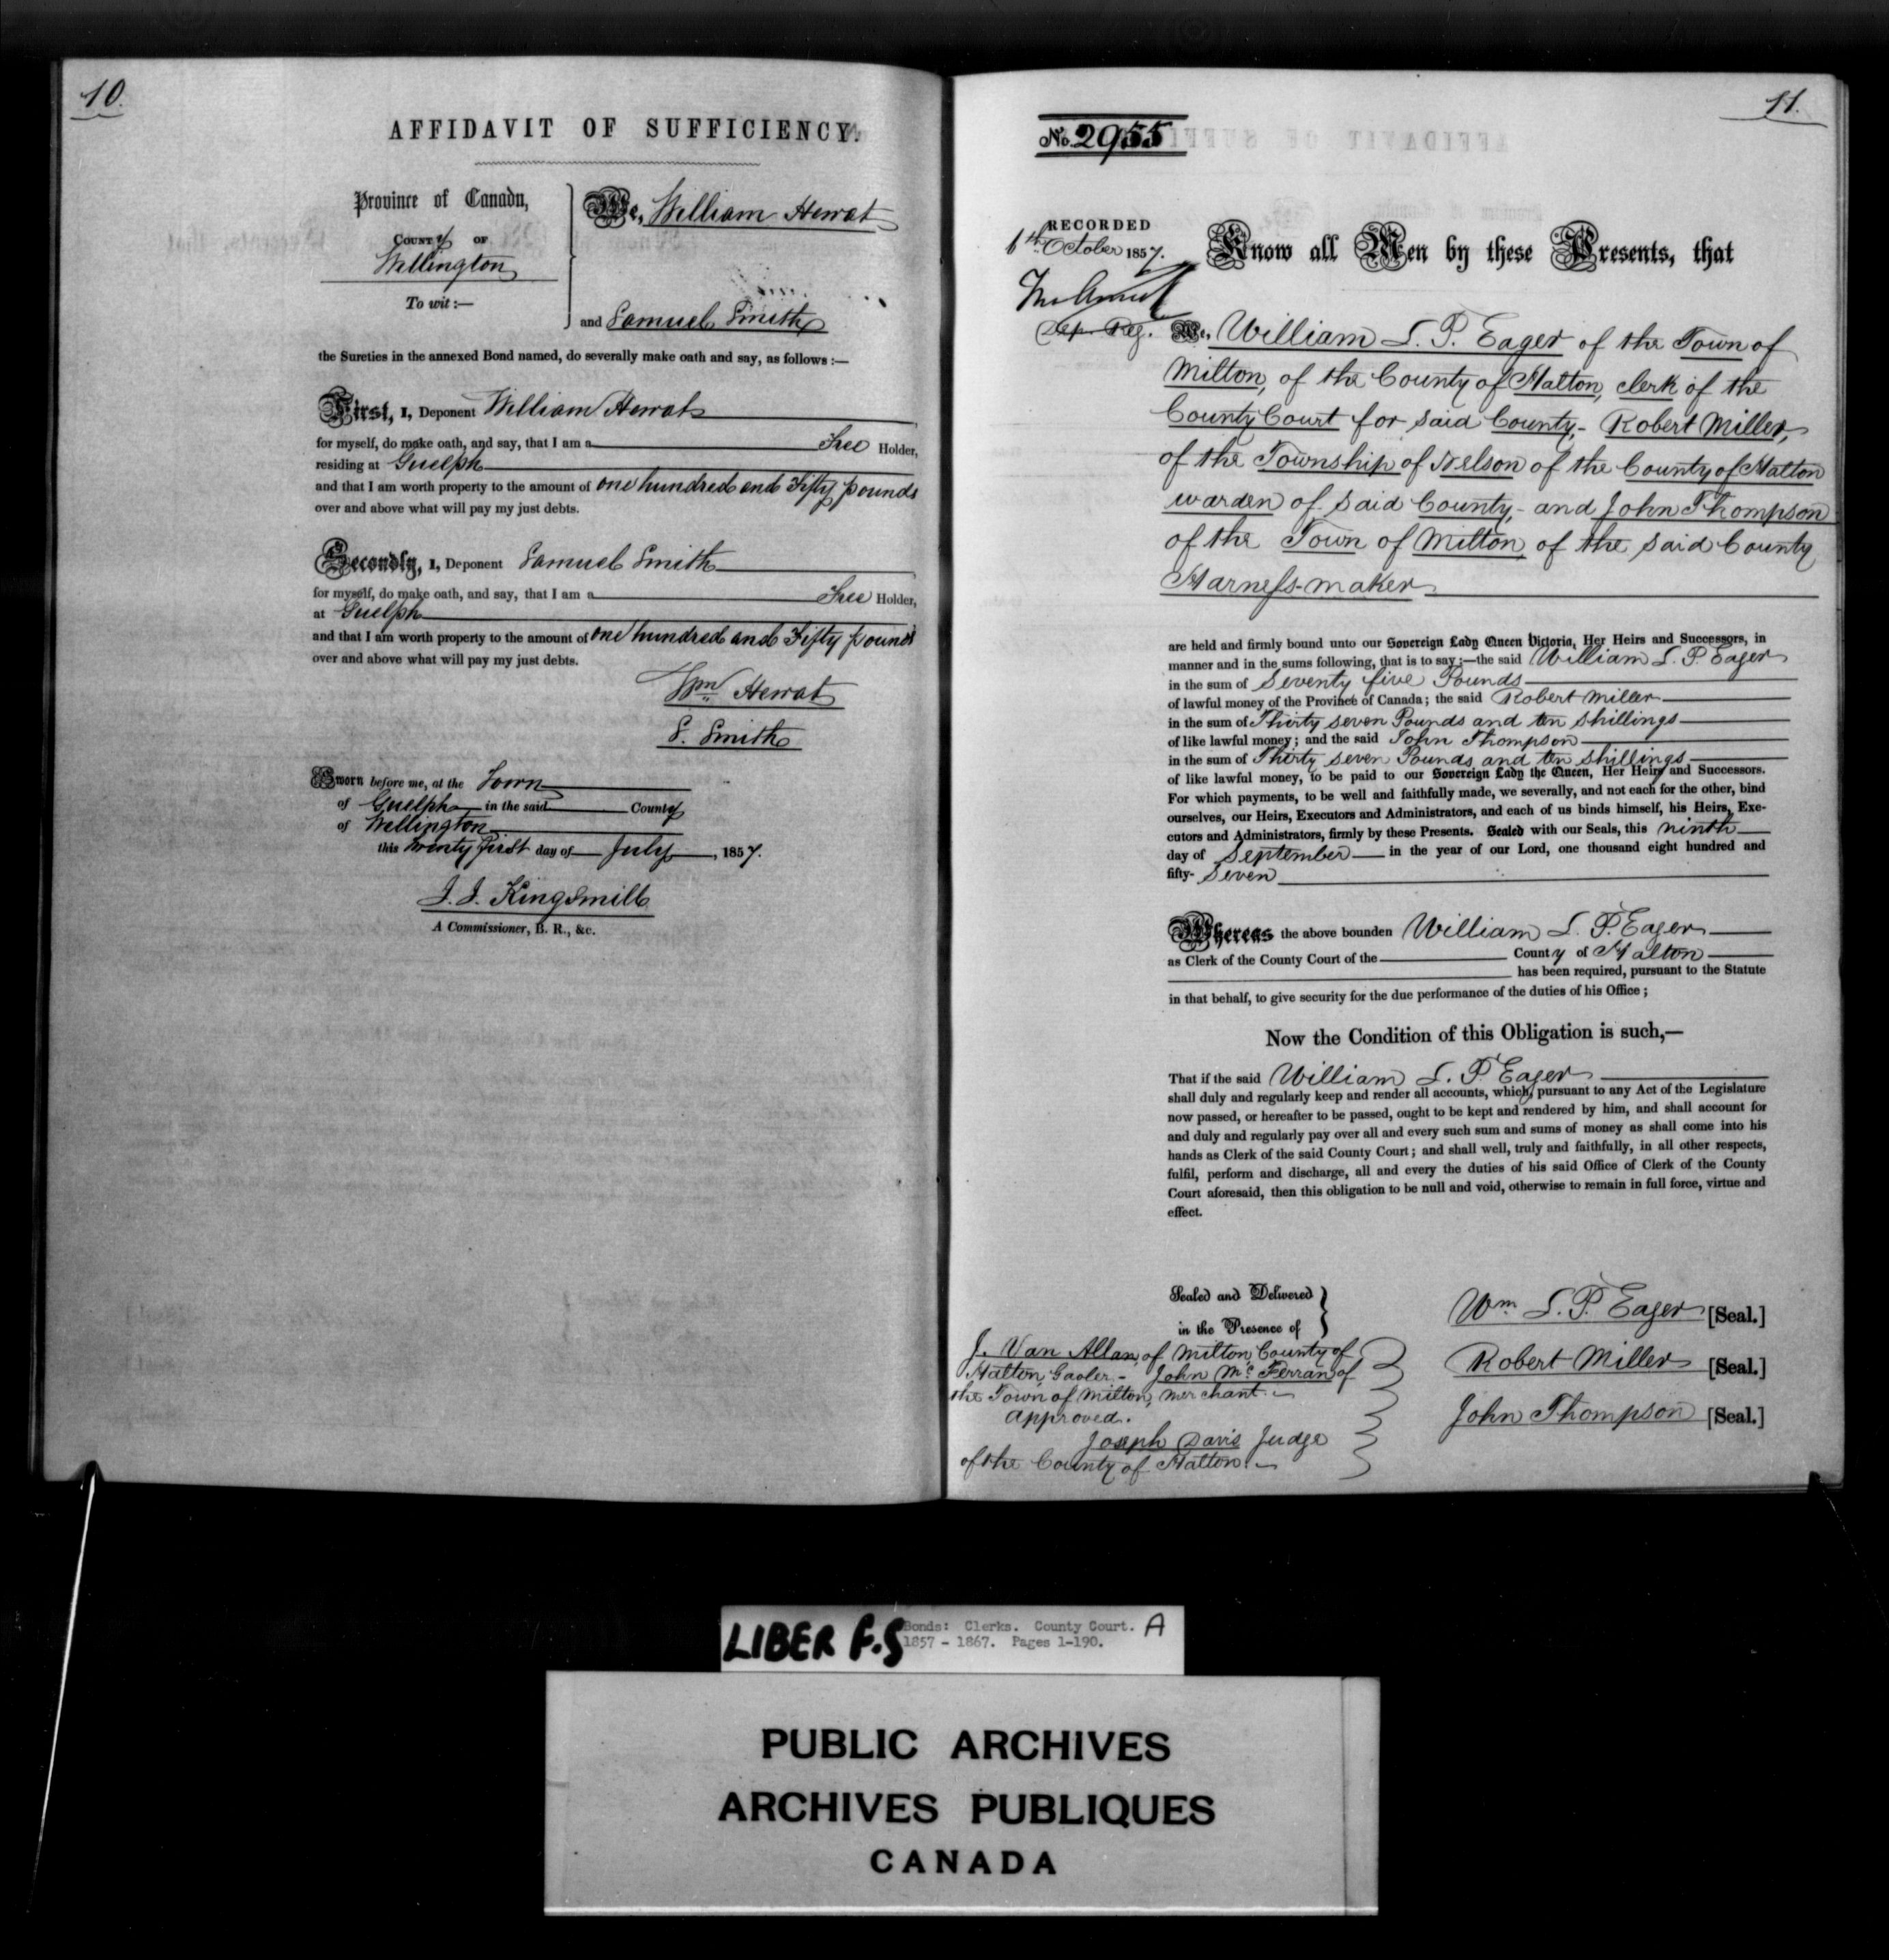 10.
AFFIDAVIT OF SUFFICIENCY.
Province of Canada,
County of
Wellington
To wit:—
We, William Hewat
and Samuel Smith
the Sureties in the annexed Bond named, do severally make oath and say, as follows:—
First, I, Deponent William Hewat
for myself, do make oath, and say, that I am a Free Holder,
residing at Guelph
and that I am worth property to the amount of one hundred and Fifty pounds
over and above what will pay my just debts.
Secondly, I, Deponent Samuel Smith
for myself, do make oath, and say, that I am a Free Holder,
at Guelph
and that I am worth property to the amount of one hundred and Fifty pounds
over and above what will pay my just debts.
Wm Hewat
S. Smith
Sworn before me, at the Town
of Guelph in the said County
of Wellington
this twenty First day of July, 1857.
J. J. Kingsmill
A Commissioner, B. R., &c.
11.
No. 2955
RECORDED
October 1857.
Dep. Reg.
Know all Men by these Presents, that
We, William L. P. Eager of the Town of
Milton, of the County of Halton, clerk of the
County Court for said County,- Robert Miller,
of the Township of Nelson of the County of Halton
warden of said County,- and John Thompson
of the Town of Milton, of the said County
Harness-maker
are held and firmly bound unto our Sovereign Lady Queen Victoria, Her Heirs and Successors, in
manner and in the sums following, that is to say;—the said William L. P. Eager
in the sum of Seventy five Pounds
of lawful money of the Province of Canada; the said Robert Miller
in the sum of Thirty seven Pounds and ten shillings
of like lawful money; and the said John Thompson
in the sum of Thirty seven Pounds and ten shillings
of like lawful money, to be paid to our Sovereign Lady the Queen, Her Heirs and Successors.
For which payments, to be well and faithfully made, we severally, and not each for the other, bind
ourselves, our Heirs, Executors and Administrators, and each of us binds himself, his Heirs, Exe-
cutors and Administrators, firmly by these Presents. Sealed with our Seals, this ninth
day of September in the year of our Lord, one thousand eight hundred and
fifty- Seven
Whereas the above bounden William L. P. Eager
as Clerk of the County Court of the County of Halton
has been required, pursuant to the Statute
in that behalf, to give security for the due performance of the duties of his Office;
Now the Condition of this Obligation is such,—
That if the said William L. P. Eager
shall duly and regularly keep and render all accounts, which, pursuant to any Act of the Legislature
now passed, or hereafter to be passed, ought to be kept and rendered by him, and shall account for
and duly and regularly pay over all and every such sum and sums of money as shall come into his
hands as Clerk of the said County Court; and shall well, truly and faithfully, in all other respects,
fulfil, perform and discharge, all and every the duties of his said Office of Clerk of the County
Court aforesaid, then this obligation to be null and void, otherwise to remain in full force, virtue and
effect.
Sealed and Delivered
in the Presence of
J. Van Allan, of Milton, County of
Halton, Gaoler - John McFerran of
the Town of Milton, merchant.
Approved.
Joseph Davis Judge
of the County of Halton.
Wm L. P. Eager [Seal.]
Robert Miller [Seal.]
John Thompson [Seal.]
LIBER F.S
Bonds: Clerks. County Court. A
1857 - 1867. Pages 1-190.
PUBLIC ARCHIVES
ARCHIVES PUBLIQUES
CANADA